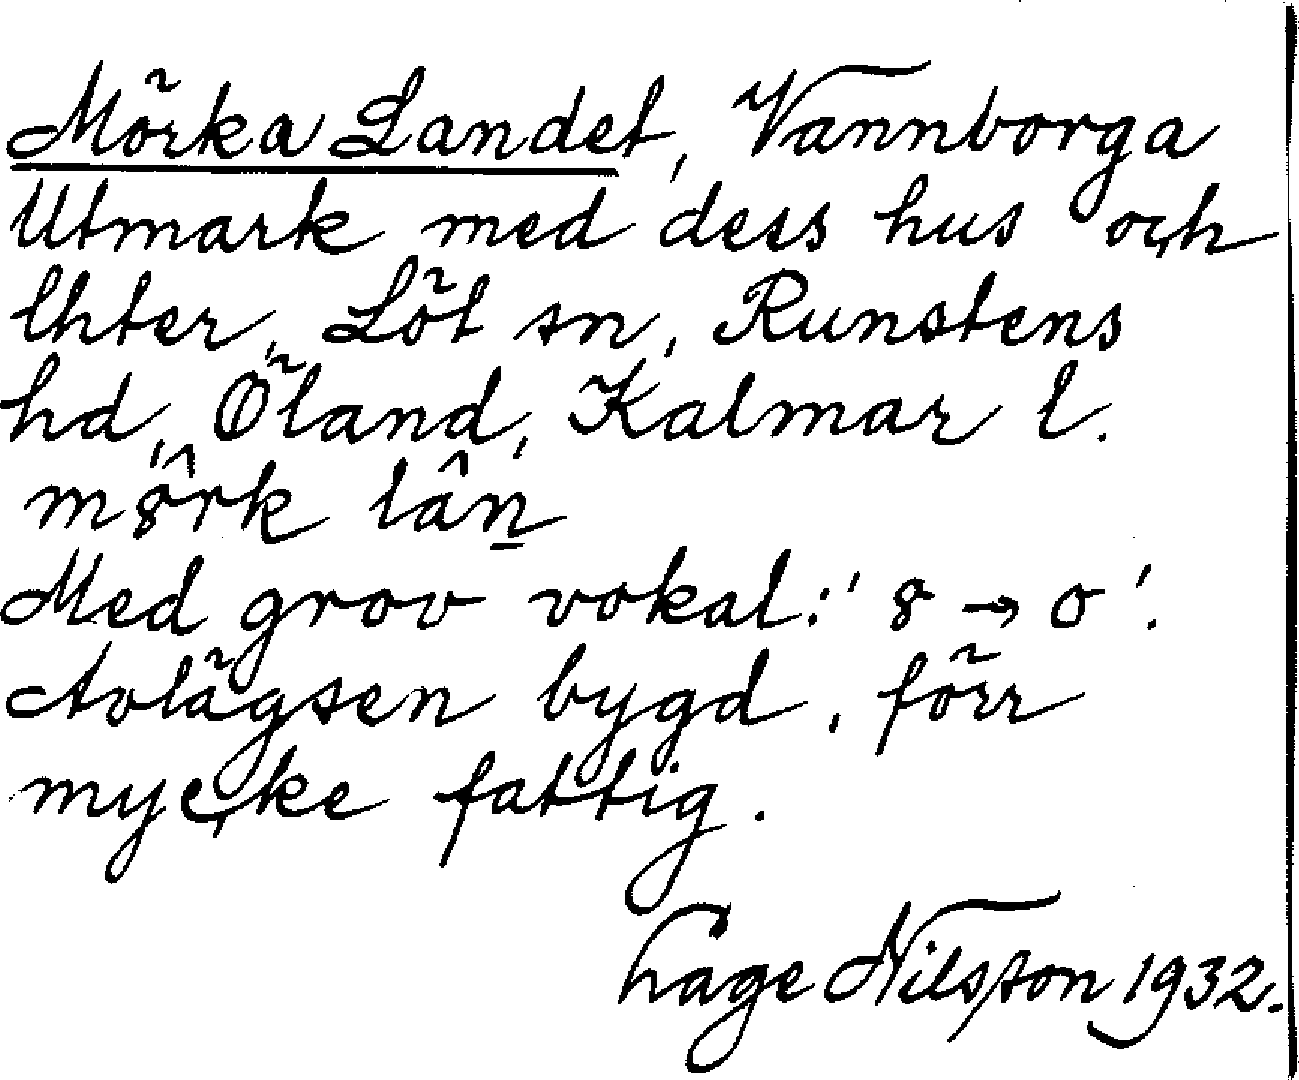 Mörka Landet, Vannborga
Utmark med dess hus och
lhter, Löt sn, Runstens
hd, Öland, Kalmar l.
mörk lân
Med grov vokal: 8 → o.
Avlägsen bygd, förr
mycke fattig.
Lage Nilsson 1932.